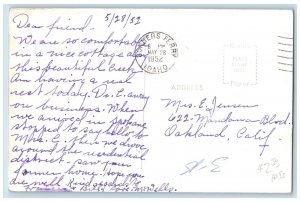 5/28/52
Dear friend.
We are so comfortable
in a nice cottage along
this beautiful Creek
Am having a real
rest today. Dr. E. away
on business. When
we arrived in Spokane
stopped to say hello to
Mrs. G. Then we drove
around the residential
district. Saw your
former home. Hope you
are well. Kind
BONNERS FERRY
6 PM
MAY 28
1952
IDAHO
ADDRESS
Mrs. E. Jensen
622- Mandana Blvd.
Oakland, Calif.